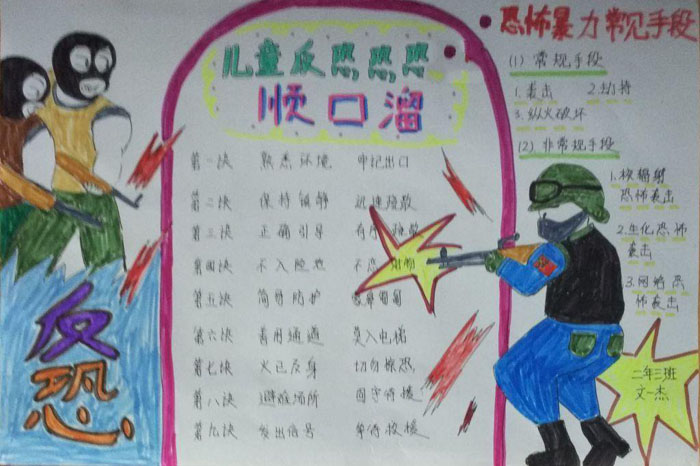 儿童反恐
顺口溜
第一诀 熟悉环境 牢记出口
第二诀 保持镇静 迅速疏散
第三诀 正确引导 有序疏散
第四诀 不入险地 不恋财物
第五诀 简易防护
第六诀 善用通道 莫入电梯
第七诀 火已及身 切勿惊恐
第八诀 避难场所 固守待援
第九诀 发出信号 等待救援
反
恐
恐怖暴力常见手段
(1) 常规手段
1.袭击 2.劫持
3.纵火破坏
(2) 非常规手段
1.核辐射
恐怖袭击
2.生化恐怖
袭击
3.网络恐
怖袭击
二年三班
文一杰